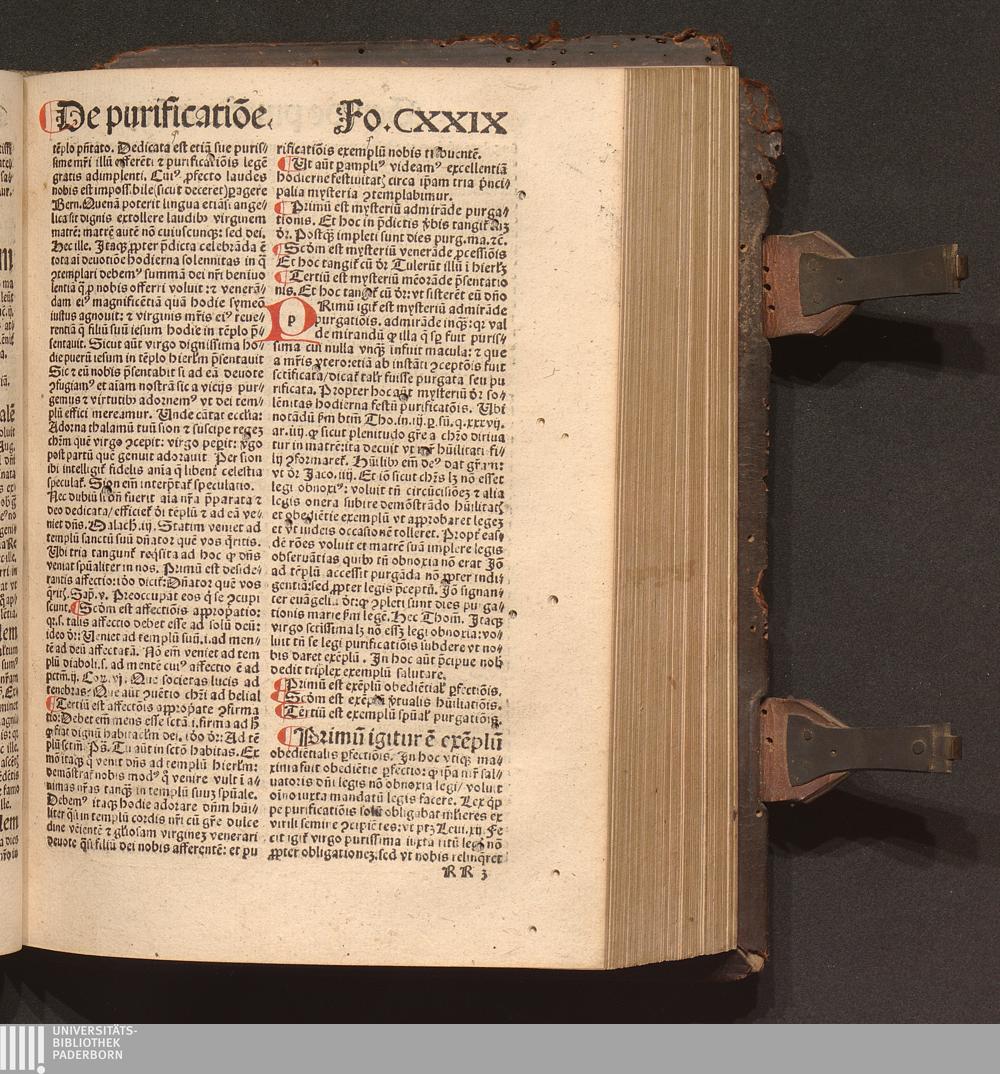 De purificatiõe. Fo. CXXIX
tẽplo p̃ñtato. Dedicata est etiã sue puris⸗
sime mr̃i illũ offerẽti ⁊ purificatiõis legẽ
gratis adimplenti. Cuiꝰ ꝓfecto laudes
nobis est imposs.bile (sicut deceret) ꝑagere
Bern. Quenã poterit lingua etiãsi ange⸗
lica sit dignis extollere laudibꝰ virginem
matrẽ: matrẽ autẽ nõ cuiuscunqꝫ: sed dei.
Hec ille. Itaqꝫ ꝓpter p̃dicta celebrãda ẽ
tota ai deuotiõe hodierna solennitas in q̃
ꝯtemplari debemꝰ summã dei nr̃i beniuo
lentiã q̃ ꝓ nobis offerri voluit: ⁊ venerã⸗
dam eiꝰ magnificẽtiã quã hodie symeõ
iustus agnouit: ⁊ virginis mr̃is eiꝰ reue⸗
rentiã q̃ filiũ suũ iesum hodie in tẽplo p̃⸗
sentauit. Sicut aũt virgo dignissima ho⸗
die puerũ iesum in tẽplo hierl̃m p̃sentauit
Sic ⁊ eũ nobis p̃sentabit si ad eã deuote
ꝯfugiamꝰ et aĩam nostrã sic a vicijs pur⸗
gemus ⁊ virtutibꝰ adornemꝰ vt dei tem⸗
plũ effici mereamur. Unde cãtat eccl̃ia:
Adorna thalamũ tuũ sion ⁊ suscipe regeꝫ
chr̃m quẽ virgo ꝯcepit: virgo peperit: v̾go
post partũ quẽ genuit adorauit Per sion
ibi intelligit̃ fidelis anĩa q̃ libent̾ celestia
speculat̃. Sion em̃ interp̃tat̃ speculatio.
Nec dubiũ si õn fuerit aĩa nr̃a p̃parata ⁊
deo dedicata / efficiet̃ õi tẽplũ ⁊ ad eã ve⸗
niet dñs. Malach. iij. Statim veniet ad
templũ sanctũ suũ dñator quẽ vos q̃ritis.
Ubi tria tangunt̃ req̃sita ad hoc ꝙ dñs
veniat spũaliter in nos. Primũ est deside⸗
rantis affectio: iõo dicit̃: Dñator quẽ vos
q̃ritꝭ. Sap̃. v. Preoccupat eos q̃ se ꝯcupi
scunt. Scd̃m est affectiõis appropatio:
q̃.s. talis affectio debet esse ad solũ deũ:
ideo d̃r: Ueniet ad templũ suũ.i.ad men⸗
tẽ ad deũ affectatã. Nõ em̃ veniet ad tem
plũ diaboli.s. ad mentẽ cuiꝰ affectio ẽ ad
pctm̃. ij. Cor. vj. Que societas lucis ad
tenebras. Que aũt ꝯuẽtio chr̃i ad belial
Tertiũ est affectiõis appropate ꝯfirma
tio: Debet em̃ mens esse sctã .i. firma ad h̾
q̃ fiat dignũ habitacl̃m dei. iõo d̃r: Ad tẽ
plũ sctm̃. Ps̃. Tu aũt in sctõ habitas. Ex⸗
mõ itaqꝫ q̃ venit dñs ad templũ hierl̃m:
demõstrat̃ nobis modꝰ q̃ venire vult ĩ a⸗
nimas nr̃as tanqꝫ in templũ suuꝫ spũale.
Debemꝰ itaqꝫ hodie adorare dñm hũi⸗
liter q̃si in templũ cordis nr̃i cũ gr̃e dulce
dine veiẽntẽ ⁊ gl̃iosam virgineꝫ venerari
deuote q̃si filiũ dei nobis afferentẽ: et pu
rificatiõis exemplũ nobis tribuentẽ.
Ut aũt ꝑampliꝰ videamꝰ excellentiã
hodierne festiuitatꝭ circa ip̃am tria p̃nci⸗
palia mysteria ꝯtemplabimur.
Primũ est mysteriũ admirãde purga⸗
tionis. Et hoc in p̃dictis v̾bis tangit̃ cũ
d̃r. Postqꝫ impleti sunt dies purg. ma. ⁊c̃.
Scd̃m est mysteriũ venerãde ꝓcessiõis
Et hoc tangit̃ cũ d̃r Tulerũt illũ ĩ hierl̃ꝫ
Tertiũ est mysteriũ mẽorãde p̃sentatio
nis. Et hoc tangit̃ cũ d̃r: vt sisterẽt eũ dño
PRimũ igit̃ est mysteriũ admirãde
purgatiõis. admirãde inq̃ꝫ: qꝛ val
de mirandũ ꝙ illa q̃ sp̃ fuit puris⸗
sima cui nulla vnqꝫ infuit macula: ⁊ que
a mr̃is vtero: etiã ab instãti ꝯceptõis fuit
sctificata / dicat̃ talr̃ fuisse purgata seu pu
rificata. Propter hoc aũt mysteriũ d̃r so⸗
lẽnitas hodierna festũ purificatõis. Ubi
notãdũ ẜm btm̃ Tho. in. iij. p. sũ. q. xxxvij.
ar. iiij. ꝙ sicut plenitudo gr̃e a chr̃o diriua
tur in matrẽ: ita decuit vt mr̃ hũilitati fi⸗
lij ꝯformaret̃. Hũilibꝰ em̃ deꝰ dat gr̃am:
vt d̃r Jaco. iiij. Et iõ sicut chr̃s lꝫ nõ esset
legi obnoxiꝰ: voluit tñ circũcisiõeꝫ ⁊ alia
legis onera subire demõstrãdo hũilitatꝭ
et obediẽtie exemplũ vt approbaret legeꝫ
et vt iudeis occasionẽ tolleret. Propt̾ eas⸗
dẽ rões voluit et matrẽ suã implere legis
obseruãtias quibꝰ tñ obnoxia nõ erat Iõ
ad tẽplũ accessit purgãda nõ ꝓpter indi⸗
gentiã: sed ꝓpter legis p̃ceptũ. Iõ signan⸗
ter euãgeli. d̃r: ꝙ ꝯpleti sunt dies pu ga⸗
tionis marie ẜm legẽ. Hec Thom̃. Itaqꝫ
virgo sctissima lꝫ nõ essꝫ legi obnoxia: vo⸗
luit tñ se legi purificatiõis subdere vt no⸗
bis daret exẽplũ. In hoc aũt p̃cipue nob̾
dedit triplex exemplũ salutare.
Primũ est exẽplũ obediẽtial̾ ꝑfectiõis.
Scd̃m est exẽplũ v̾tualis hũiliatiõis.
Tertiũ est exemplũ spũal̾ purgatiõis.
Primũ igitur ẽ exẽplũ
obediẽtialis ꝑfectiõis. In hoc vtiqꝫ ma⸗
xima fuit obediẽtie ꝑfectio: ꝙ ip̃a mr̃ sal⸗
uatoris dñi legis nõ obnoxia legi / voluit
oĩno iuxta mandatũ legis facere. Lex q̃p
pe purificatiõis solũ obligabat mlieres ex
virili semine ꝯcipiẽtes: vt ptꝫ Leui. xij. Fe
cit igit̃ virgo purissima iuxta ritũ legꝭ nõ
ꝓpter obligationeꝫ. sed vt nobis relinq̃ret
RR 3
UNIVERSITÄTS-
BIBLIOTHEK
PADERBORN